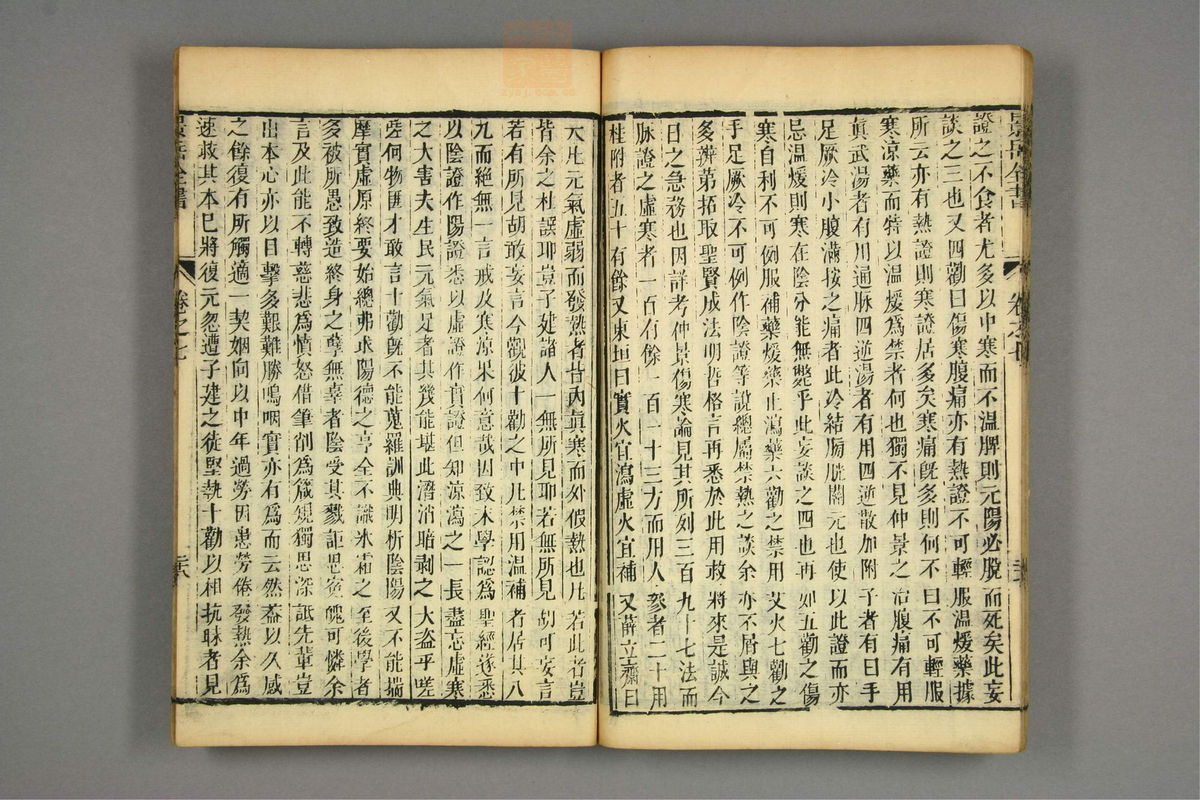 景岳全書
卷之七
證之不食者尤多以中寒而不溫脾則元陽必脫而死矣此妄
談之三也又四勸曰傷寒腹痛亦有熱證不可輕服溫煖藥據
所云亦有熱證則寒證居多矣寒痛旣多則何不曰不可輕服
寒涼藥而特以溫煖爲禁者何也獨不見仲景之治腹痛有用
眞武湯者有用通脉四逆湯者有用四逆散加附子者有曰手
足厥冷小腹滿按之痛者此冷結膀胱關元也使以此證而亦
忌溫煖則寒在陰分能無斃乎此妄談之四也再如五勸之傷
寒自利不可例服補藥煖藥止瀉藥六勸之禁用艾火七勸之
手足厥冷不可例作陰證等說總屬禁熱之談余亦不屑與之
多辨第拓取聖賢成法明哲格言再悉於此用救將來是誠今
日之急務也因詳考仲景傷寒論見其所列三百九十七法而
脉證之虛寒者一百有餘一百一十三方而用人參者二十用
桂附者五十有餘又東垣曰實火宜瀉虛火宜補又薛立齋曰
大凡元氣虛弱而發熱者皆內眞寒而外假熱也凡若此者豈
皆余之杜誤耶豈子建諸人一無所見耶若無所見胡可妄言
若有所見胡敢妄言今觀彼十勸之中凡禁用溫補者居其八
九而絕無一言戒及寒涼果何意哉因致末學認爲聖經遂悉
以陰證作陽證悉以虛證作實證但知涼瀉之一長盡忘虛寒
之大害夫生民元氣足者其幾能堪此潛消暗剥之大盜乎嗟
嗟何物匪才敢言十勸旣不能蒐羅訓典明析陰陽又不能揣
摩實虛原終要始總弗求陽德之亨全不識氷霜之至後學者
多被所愚致造終身之孽無辜者陰受其戮詎思寃魄可憐余
言及此能不轉慈悲爲憤怒借筆削爲箴規獨思深詆先輩豈
出本心亦以目擊多艱難勝嗚咽實亦有爲而云然葢以久感
之餘復有所觸適一契姻向以中年過勞因患勞倦發熱余爲
速救其本已將復元忽遭子建之徒堅執十勸以相抗昧者見
景岳全書
卷之七